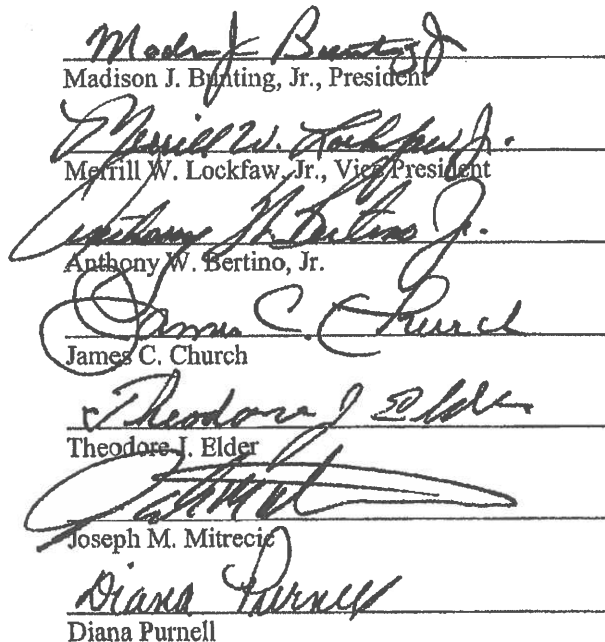 Madison J. Bunting Jr
Madison J. Bunting, Jr., President
Merrill W. Lockfaw Jr.
Merrill W. Lockfaw, Jr., Vice President
Anthony W. Bertino Jr.
Anthony W. Bertino, Jr.
James C. Church
James C. Church
Theodore J Elder
Theodore J. Elder
Joseph M. Mitrecic
Diana Purnell
Diana Purnell